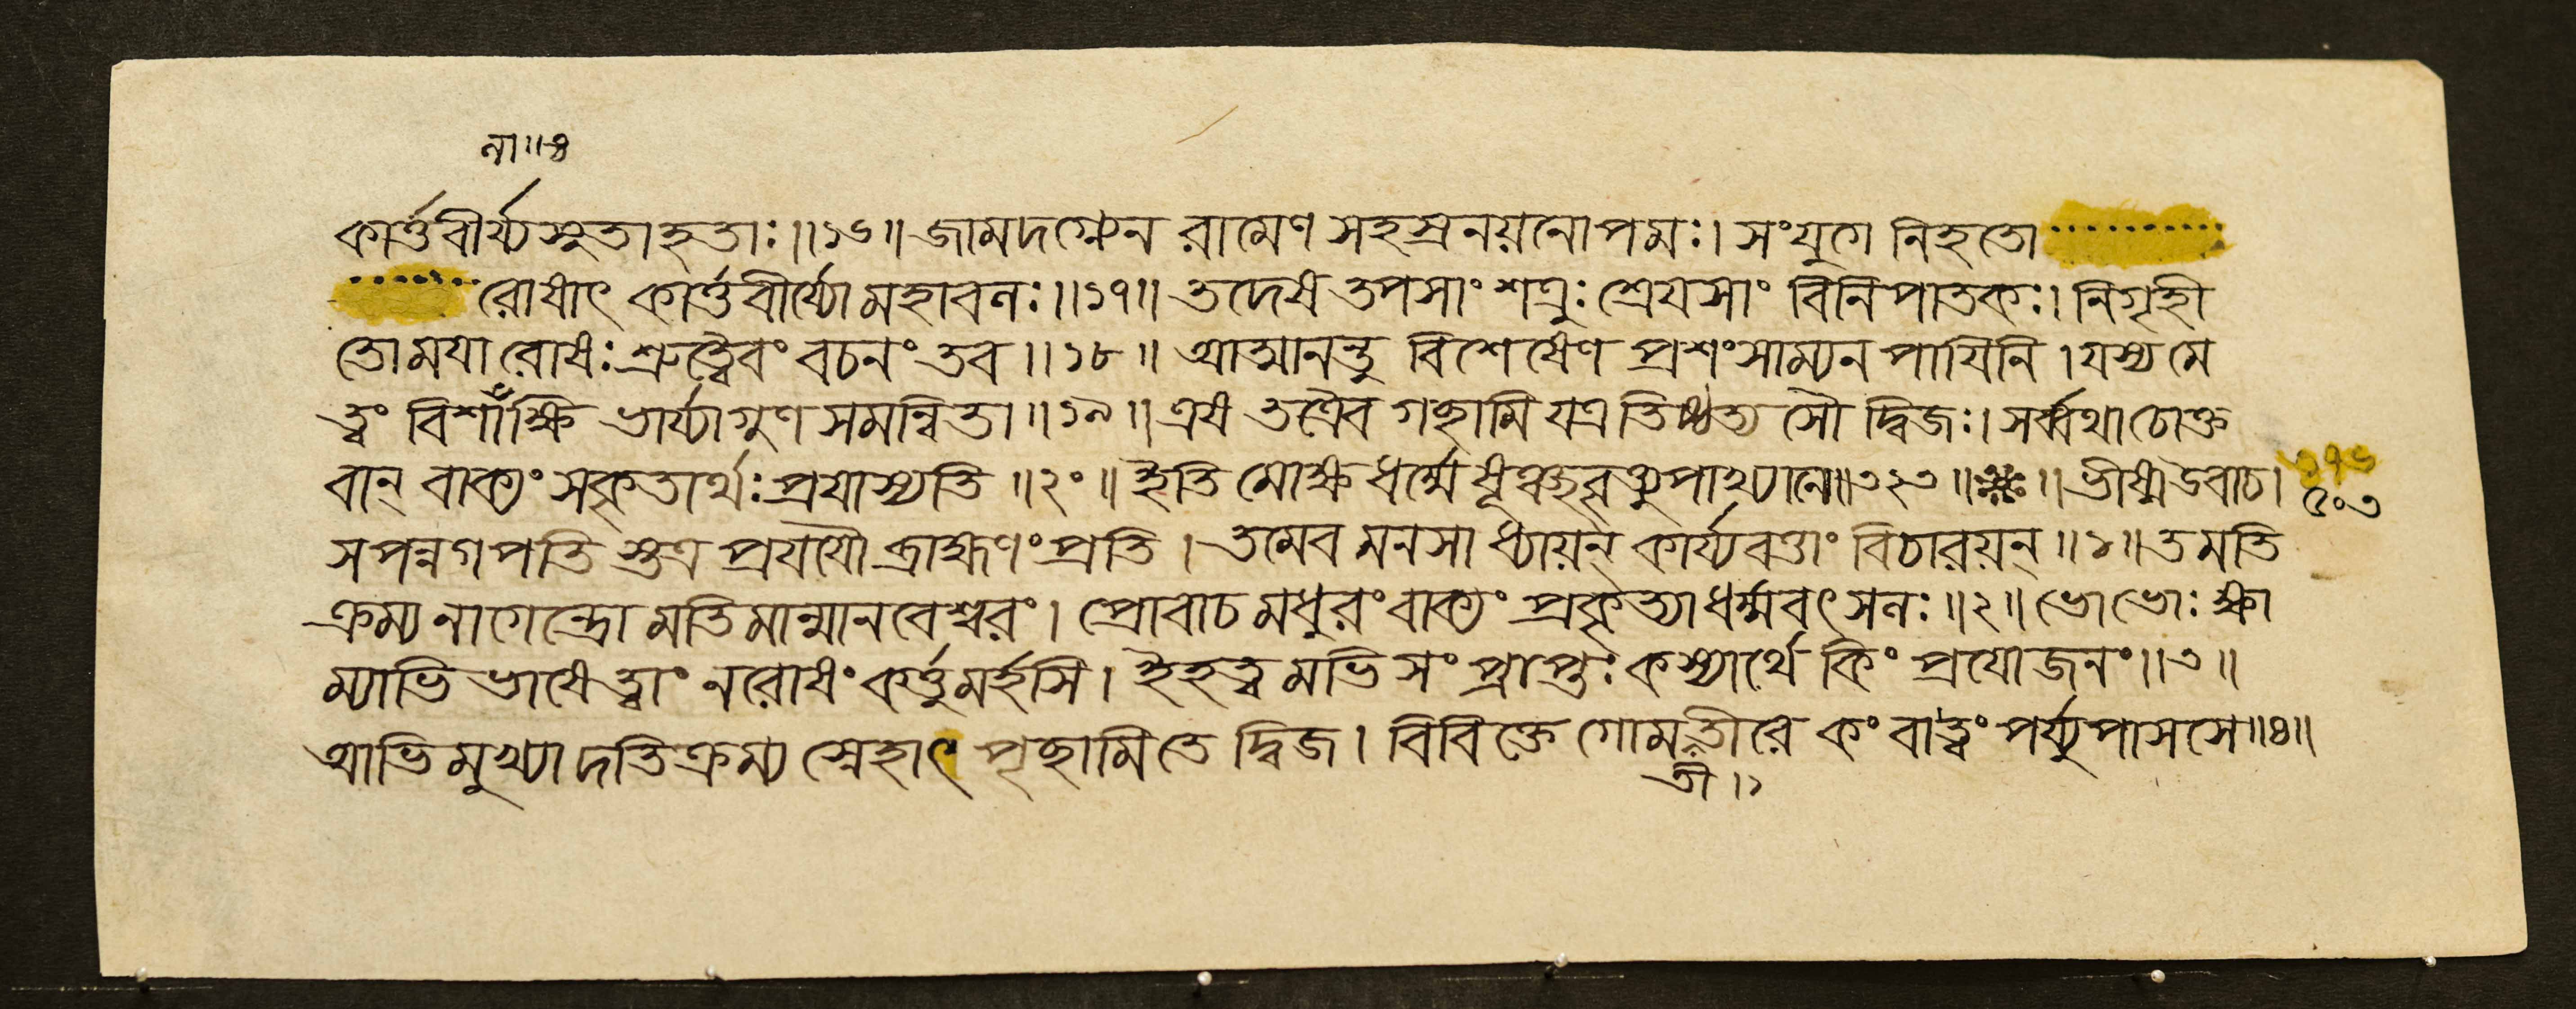 না॥৩
কার্ত্তবীর্য্যস্সুতাহতাঃ॥১৬॥ জামদগ্ন্যেন রামেণ সহস্রনয়নোপমঃ। সংযুগে নিহতো
রোষাৎ কার্ত্তবীর্য্যো মহাবলঃ॥১৭॥ তদেষ তপসাং শত্রুঃ শ্রেযসাং বিনিপাতকঃ। নিগৃহী
তো ময়া রোষঃ শ্রুত্বৈবং বচনং তব॥১৮॥ আত্মানন্তু বিশেষেণ প্রশংসাম্যনপায়িনি। যস্য মে
ত্বং বিশালাক্ষি ভার্য্যা গুণসমন্বিতা॥১৯॥ এষ তত্রৈব গচ্ছামি যত্র তিষ্ঠত্যসৌ দ্বিজঃ। সর্ব্বথা চোক্ত
বান্ বাক্যং সকৃতার্থঃ প্রযাস্যতি॥২০॥ ইতি মোক্ষধর্ম্মে উপাখ্যানে॥৩২৩॥ ॥ ভীষ্ম উবাচ।
৫০৩
স পন্নগপতিস্তত্র প্রযযৌ ব্রাহ্মণং প্রতি। তমেব মনসা ধ্যায়ন্ কার্য্যবত্তাং বিচারয়ন্॥১॥ তমতি
ক্রম্য নাগেন্দ্রো মতিমান্মানবেশ্বরং। প্রোবাচ মধুরং বাক্যং প্রকৃত্যা ধর্ম্মবৎসলঃ॥২॥ ভো ভোঃ ক্ষা
ম্যাভিভাষে ত্বাং ন রোষং কর্ত্তুমর্হসি। ইহ ত্বমভিসংপ্রাপ্তঃ কস্যার্থে কিং প্রযোজনং॥৩॥
আভিমুখ্যাদতিক্রম্য স্নেহাৎ পৃচ্ছামি তে দ্বিজ। বিবিক্তে গোমতীরে কং বা ত্বং পর্য্যুপাসসে॥৪॥
তী।১